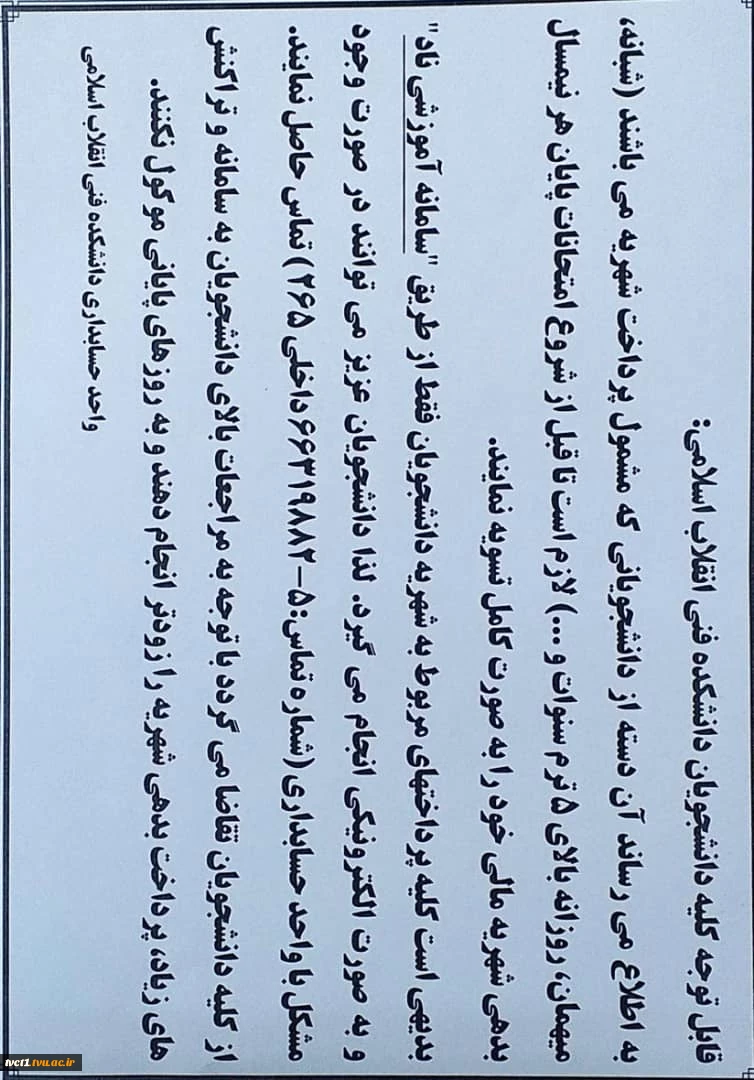 قابل توجه کلیه دانشجویان دانشکده فنی انقلاب اسلامی:
به اطلاع می رساند آن دسته از دانشجویانی که مشمول پرداخت شهریه می باشند (شبانه،
میهمان، روزانه بالای ۵ ترم سنوات و ...) لازم است تا قبل از شروع امتحانات پایان هر نیمسال
بدهی شهریه مالی خود را به صورت کامل تسویه نمایند.
بدیهی است کلیه پرداختهای مربوط به شهریه دانشجویان فقط از طریق "سامانه آموزشی ناد"
و به صورت الکترونیکی انجام می گیرد. لذا دانشجویان عزیز می توانند در صورت وجود
مشکل با واحد حسابداری (شماره تماس: ۵-۶۶۳۱۹۸۸۲ داخلی ۲۶۵) تماس حاصل نمایند.
از کلیه دانشجویان تقاضا می گردد با توجه به مراجعات بالای دانشجویان به سامانه و تراکنش
های زیاد، پرداخت بدهی شهریه را زودتر انجام دهند و به روزهای پایانی موکول نکنند.
واحد حسابداری دانشکده فنی انقلاب اسلامی
tvct1.tvu.ac.ir